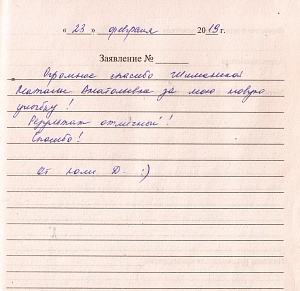 « 23 » февраля 2019 г.
Заявление №
Огромное спасибо Шиманской
Наталье Анатольевне за мою новую
улыбку!
Результат отличный!
Спасибо!
От Юли Д. :)